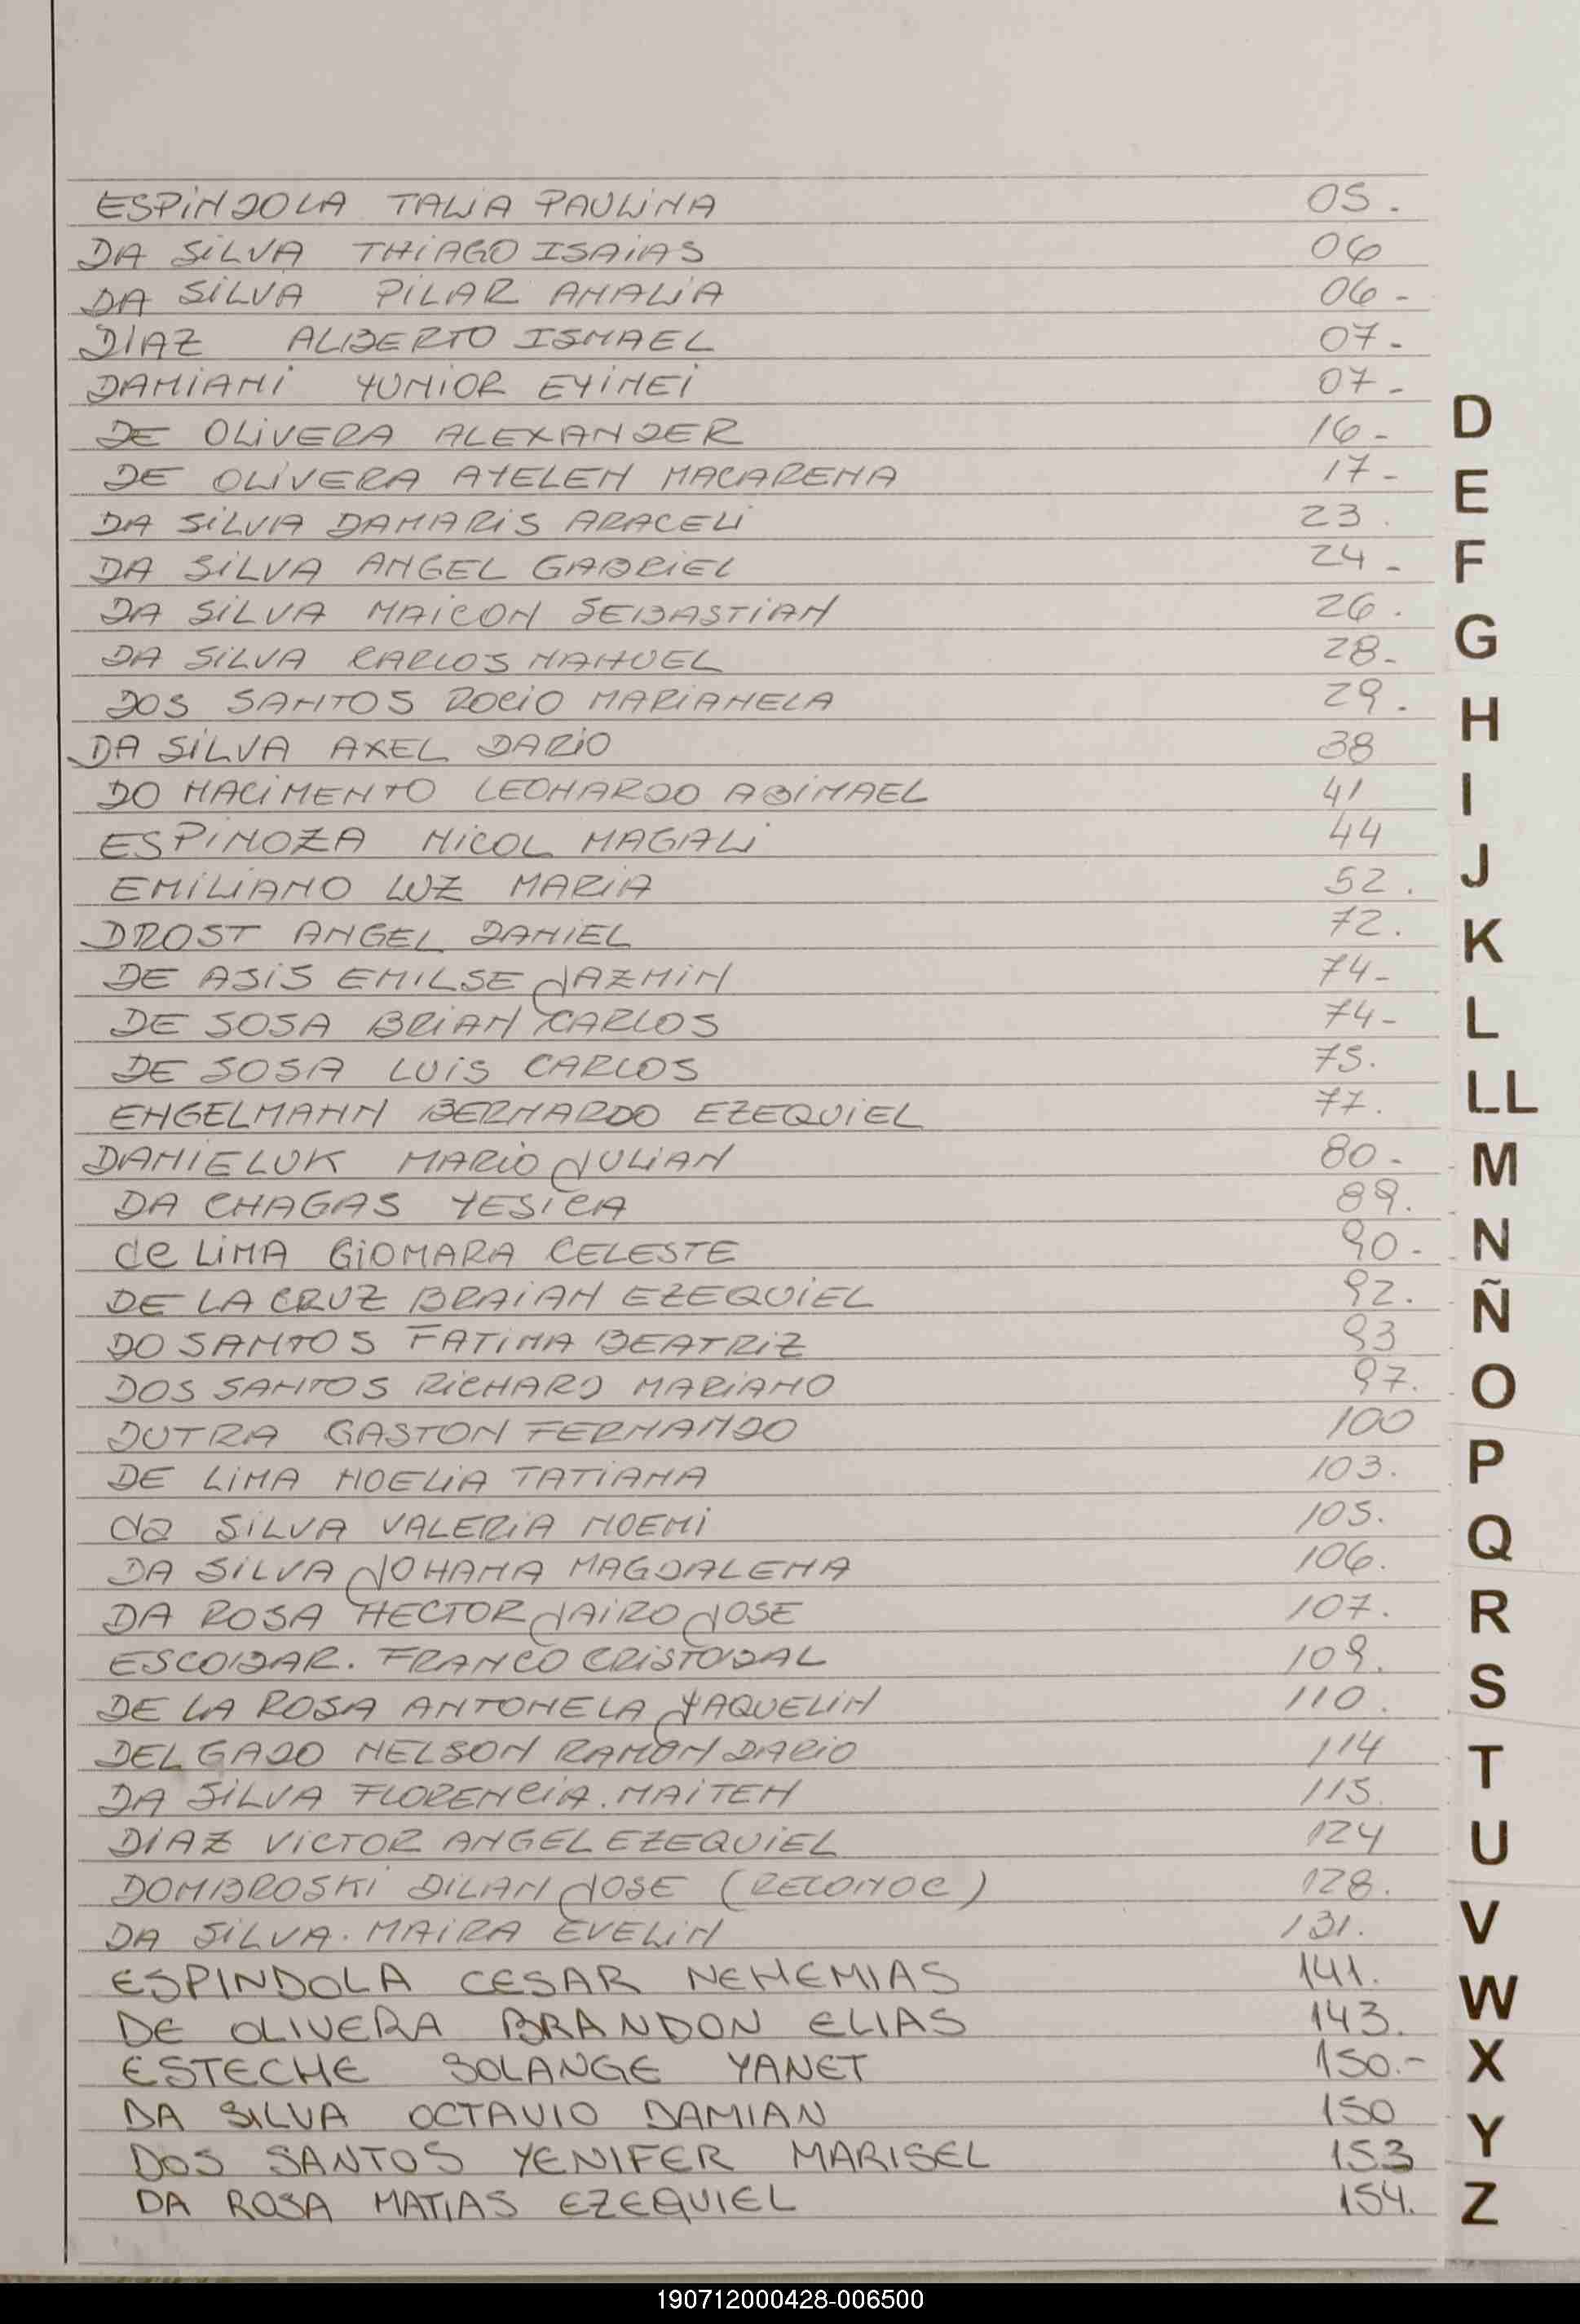 ESPINDOLA TALIA PAULINA 05.
DA SILVA THIAGO ISAIAS 06
DA SILVA PILAR AMALIA 06-
DIAZ ALBERTO ISMAEL 07-
DAMIANI YUNIOR EYINEI 07-
DE OLIVERA ALEXANDER 16-
DE OLIVERA AYELEN MACARENA 17-
DA SILVA DAMARIS ARACELI 23.
DA SILVA ANGEL GABRIEL 24-
DA SILVA MAICON SEBASTIAN 26.
DA SILVA CARLOS NAHUEL 28-
DOS SANTOS ROCIO MARIANELA 29.
DA SILVA AXEL DARIO 38
DO NACIMENTO LEONARDO ABIMAEL 41
ESPINOZA NICOL MAGALI 44
EMILIANO LUZ MARIA 52.
DROST ANGEL DANIEL 72.
DE ASIS EMILSE JAZMIN 74-
DE SOSA BRIAN CARLOS 74-
DE SOSA LUIS CARLOS 75.
ENGELMANN BERNARDO EZEQUIEL 77.
DANIELUK MARIO JULIAN 80-
DA CHAGAS YESICA 89.
de LIMA GIOMARA CELESTE 90-
DE LA CRUZ BRAIAN EZEQUIEL 92.
DO SANTOS FATIMA BEATRIZ 93
DOS SANTOS RICHARD MARIANO 97.
DUTRA GASTON FERNANDO 100
DE LIMA NOELIA TATIANA 103.
da SILVA VALERIA NOEMI 105.
DA SILVA JOHANA MAGDALENA 106.
DA ROSA HECTOR JAIRO JOSE 107.
ESCOBAR. FRANCO CRISTOBAL 109.
DE LA ROSA ANTONELA JAQUELIN 110.
DELGADO NELSON RAMON DARIO 114
DA SILVA FLORENCIA. MAITEN 115.
DIAZ VICTOR ANGEL EZEQUIEL 124
DOMBROSKI DILAN JOSE (RECONOC) 128.
DA SILVA. MAIRA EVELIN 131.
ESPINDOLA CESAR NEHEMIAS 141.
DE OLIVERA BRANDON ELIAS 143.
ESTECHE SOLANGE YANET 150.-
DA SILVA OCTAVIO DAMIAN 150
DOS SANTOS YENIFER MARISEL 153
DA ROSA MATIAS EZEQUIEL 154.
D
E
F
G
H
I
J
K
L
LL
M
N
Ñ
O
P
Q
R
S
T
U
V
W
X
Y
Z
190712000428-006500